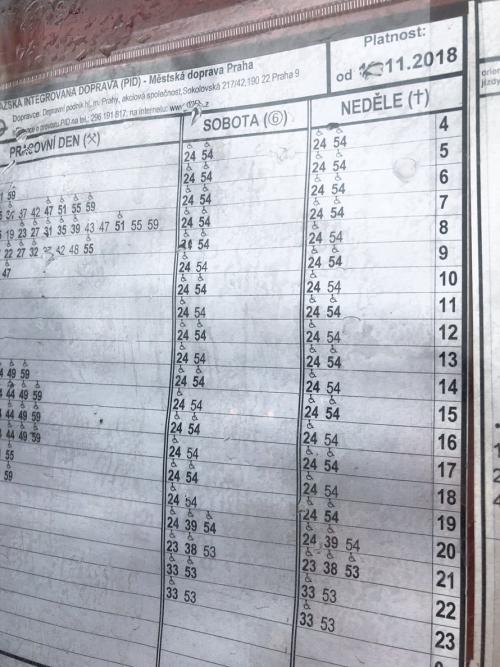 Platnost:
od 11.2018
INTEGROVANÁ DOPRAVA (PID) - Městská doprava Praha
Dopravce: Dopravní podnik hl. m. Prahy, akciová společnost, Sokolovská 217/42, 190 22 Praha 9
o provozu PID na tel.: 296 191 817, na internetu:
PRACOVNÍ DEN (⚒) SOBOTA (⑥) NEDĚLE (†)
24 54 24 54 4
59 24 54 24 54 5
37 42 47 51 55 59 24 54 24 54 6
19 23 27 31 35 39 43 47 51 55 59 24 54 24 54 7
22 27 32 42 48 55 24 54 24 54 8
47 24 54 24 54 9
24 54 24 54 10
24 54 24 54 11
24 54 24 54 12
24 54 24 54 13
49 59 24 54 24 54 14
44 49 59 24 54 24 54 15
44 49 59 24 54 24 54 16
44 49 59 24 54 24 54 17
55 24 54 24 54 18
59 24 54 24 54 19
24 39 54 24 39 54 20
23 38 53 23 38 53 21
33 53 33 53 22
33 53 33 53 23